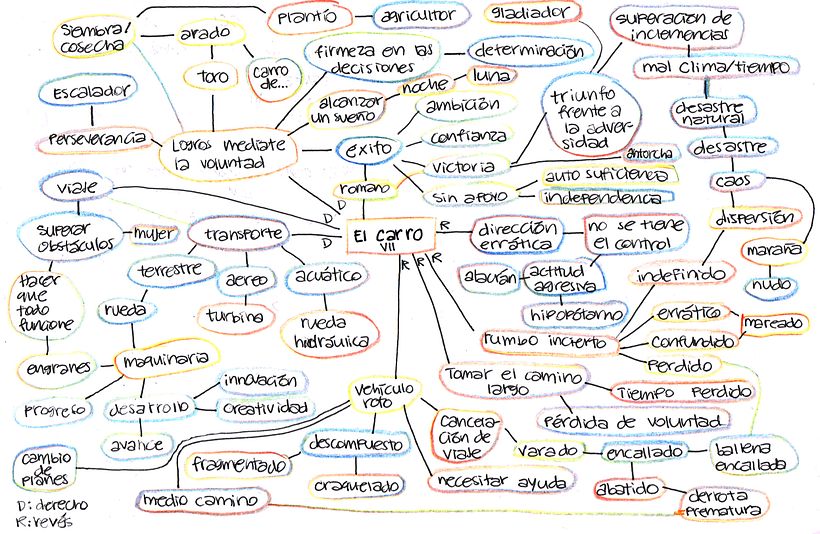 siembra/
cosecha
arado
toro
carro
de...
plantío
agricultor
gladiador
superación de
inclemencias
mal clima/tiempo
firmeza en las
decisiones
determinación
luna
noche
alcanzar
un sueño
ambición
triunfo
frente a
la adver-
sidad
desastre
natural
desastre
caos
dispersión
maraña
nudo
Escalador
Perseverancia
Logros mediate
la voluntad
éxito
confianza
victoria
antorcha
romano
sin apoyo
auto suficiencia
independencia
viaje
superar
obstáculos
mujer
transporte
D
D
D
El carro
VII
R
R
R
R
dirección
errática
no se tiene
el control
alacrán
actitud
agresiva
hipopótamo
indefinido
Hacer
que
todo
funcione
terrestre
aereo
turbina
acuático
rueda
hidráulica
rueda
engranes
maquinaria
rumbo incierto
errático
confundido
mareado
perdido
progreso
desarrollo
innovación
creatividad
avance
vehículo
roto
Tomar el camino
largo
Tiempo perdido
pérdida de voluntad
cancela-
ción de
viaje
varado
encallado
ballena
encallada
cambio
de
planes
fragmentado
descompuesto
craquelado
medio camino
necesitar ayuda
abatido
derrota
prematura
D: derecho
R: revés